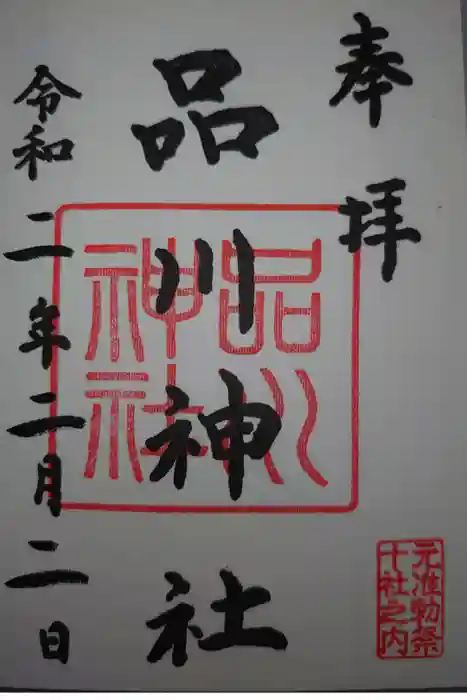 奉拝
品川神社
品川神社
元准勅祭
十社之内
令和二年二月二日